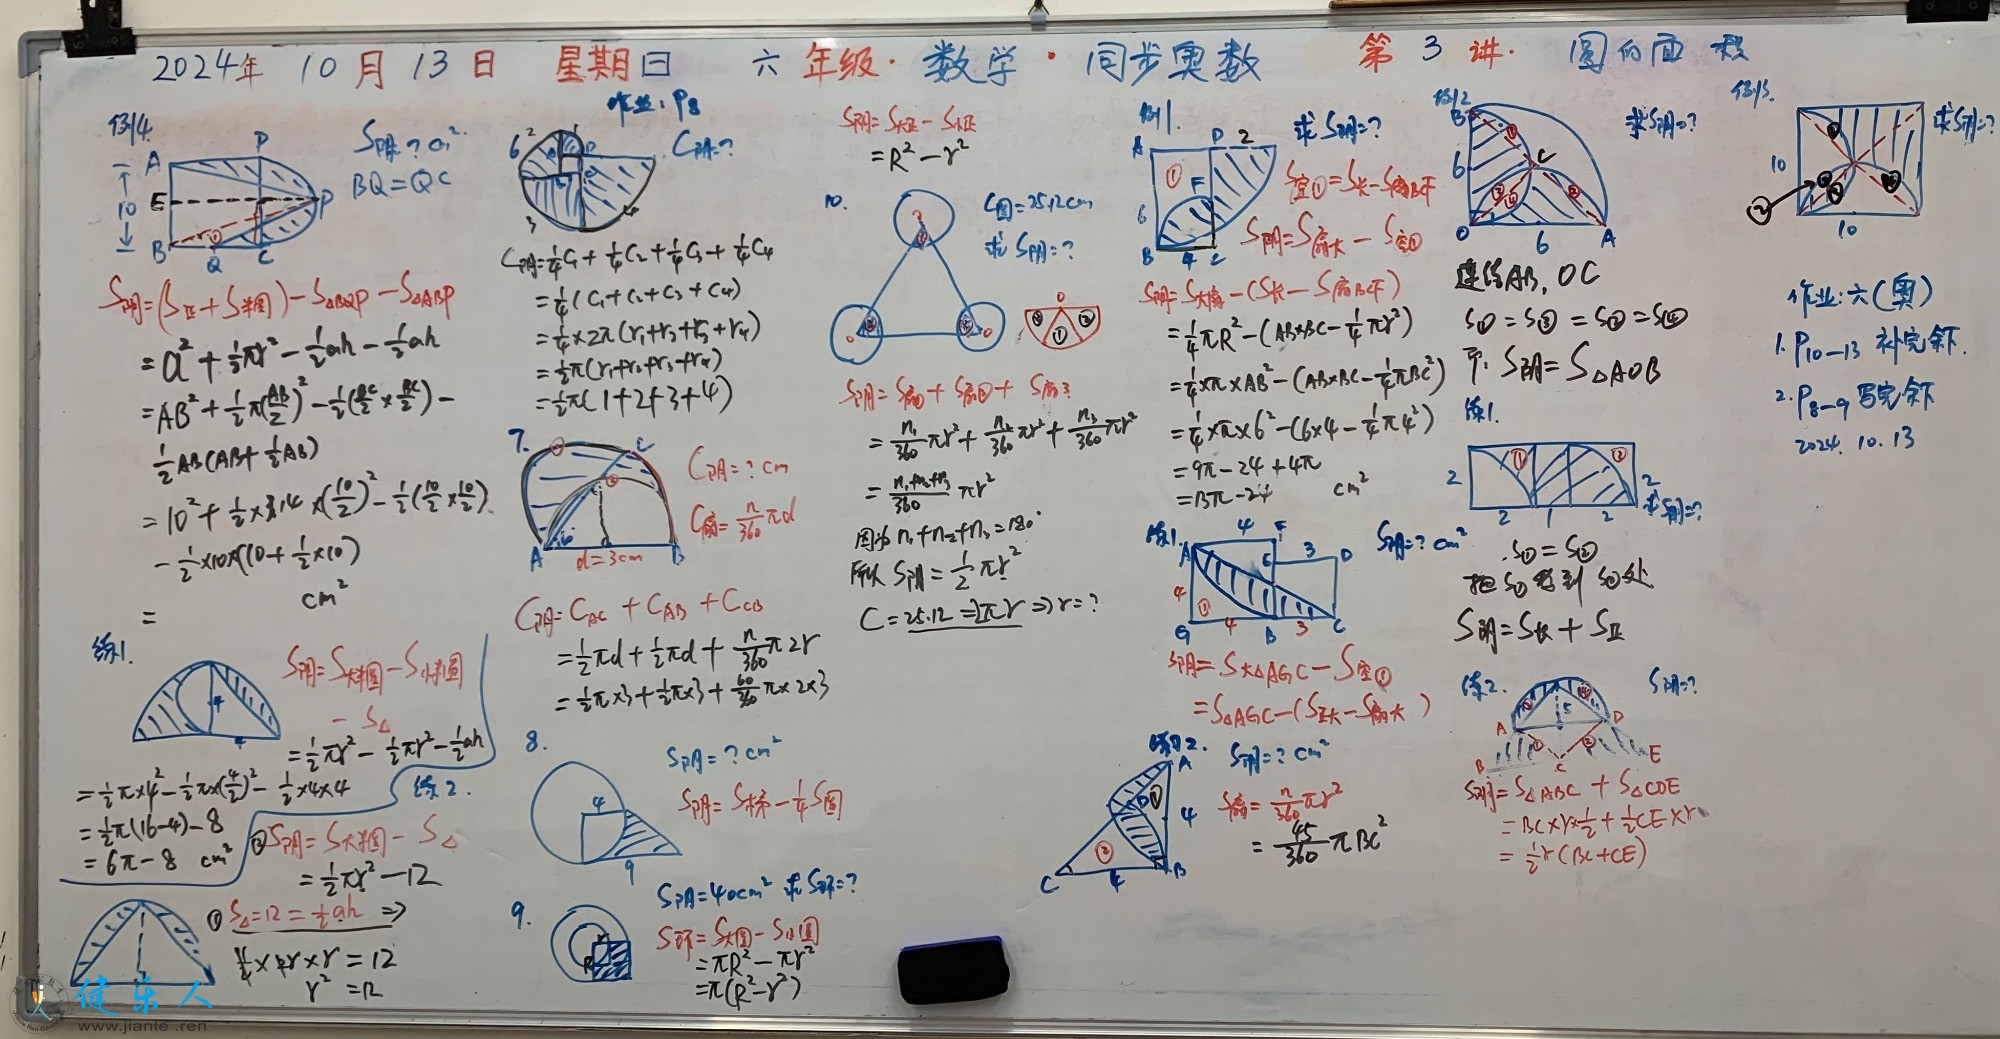 2024年 10月 13日 星期日 六年级·数学·同步奥数 第3讲·圆的面积
例4.
S阴=? cm²
BQ=QC
A
P
E
10
P
B
①
Q
C
S阴=(S正+S半圆)-S△BQP-S△ABP
=a²+½πr²-½ah-½ah
=AB²+½π(AB/2)²-½(BC/2×BC/2)-
½AB(AB+½AB)
=10²+½×3.14×(10/2)²-½(10/2×10/2)
-½×10×(10+½×10)
= cm²
练1.
4
4
S阴=S大半圆-S小半圆
-S△
=½πr²-½πr²-½ah
=½π×4²-½π×(4/2)²-½×4×4
=½π(16-4)-8
=6π-8 cm²
练2.
②S阴=S大半圆-S△
=½πr²-12
①S△=12=½ah ⇒
r²=12
作业:P8
6
2
1
3
4
C阴=?
C阴=¼C₁+¼C₂+¼C₃+¼C₄
=¼(C₁+C₂+C₃+C₄)
=¼×2π(r₁+r₂+r₃+r₄)
=½π(r₁+r₂+r₃+r₄)
=½π(1+2+3+4)
7.
C
A
B
d=3cm
C阴=? cm
C扇=n/360 πd
C阴=C AC+C AB+C CB
=½πd+½πd+n/360 π2r
=½π×3+½π×3+60/360 π×2×3
8.
4
9
S阴=? cm²
S阴=S梯-¼S圆
9.
r
R
S阴=40cm² 求S环=?
S环=S大圆-S小圆
=πR²-πr²
=π(R²-r²)
S阴=S大正-S小正
=R²-r²
10.
C圆=25.12cm
求S阴=?
S阴=S扇①+S扇②+S扇3
=n₁/360 πr²+n₂/360 πr²+n₃/360 πr²
=n₁+n₂+n₃/360 πr²
因为n₁+n₂+n₃=180°
所以 S阴=½πr²
C=25.12=2πr⇒r=?
例1.
A
D
2
①
F
6
B
4
C
求S阴=?
S空①=S长-S扇BCF
S阴=S扇大-S空①
S阴=S大扇-(S长-S扇BCF)
=¼πR²-(AB×BC-¼πr²)
=¼×π×AB²-(AB×BC-¼πBC²)
=¼×π×6²-(6×4-¼π4²)
=9π-24+4π
=13π-24 cm²
练1.
4
F
A
E
3
D
4
①
G
4
B
3
C
S阴=? cm²
S阴=S大△AGC-S空①
=S△AGC-(S正大-S扇大)
练习2.
A
D
①
4
②
C
4
B
S阴=? cm²
S扇=n/360 πr²
=45/360 πBC²
例2
B
①
C
6
③
④
②
O
6
A
求S阴=?
连结AB,OC
S①=S③=S②=S④
S阴=S△AOB
练1.
①
②
2
2
2
1
2
求S阴=?
S①=S②
S阴=S长+S正
练2.
S阴=?
5
A
D
B
C
E
S阴=S△ABC+S△CDE
=BC×r×½+½CE×r
=½r(BC+CE)
例3.
求S阴=?
10
10
②
作业:六(奥)
1. P10-13 补完余下.
2. P8-9 写完余下
2024.10.13
健乐人
www.jianle.ren